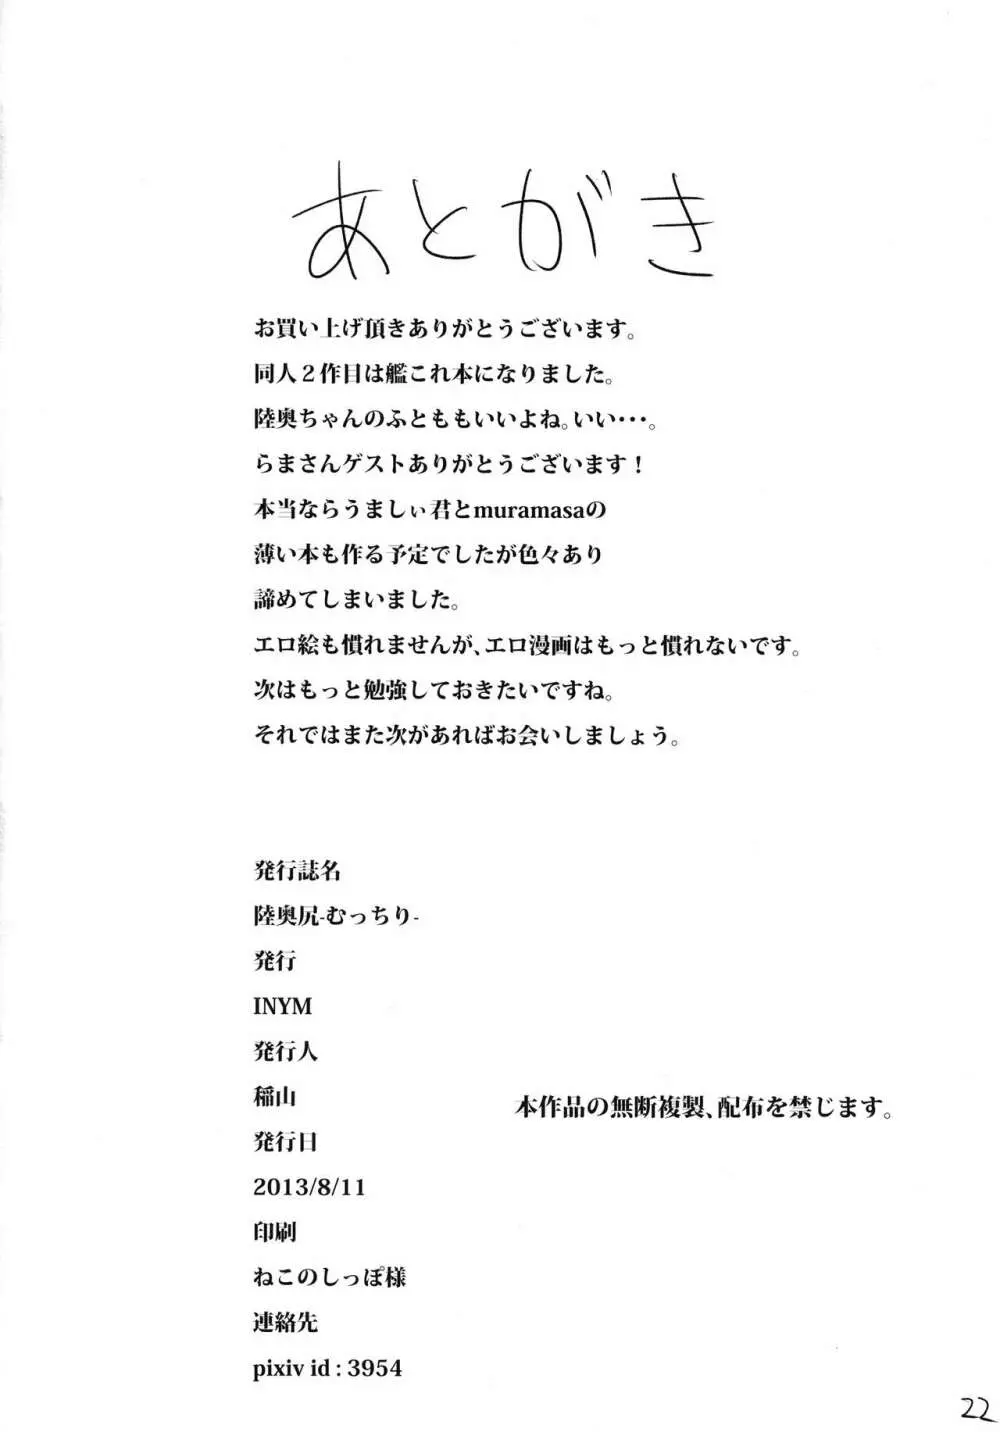 あとがき
お買い上げ頂きありがとうございます。
同人２作目は艦これ本になりました。
陸奥ちゃんのふとももいいよね。いい・・・。
らまさんゲストありがとうございます！
本当ならうましぃ君とmuramasaの
薄い本も作る予定でしたが色々あり
諦めてしまいました。
エロ絵も慣れませんが、エロ漫画はもっと慣れないです。
次はもっと勉強しておきたいですね。
それではまた次があればお会いしましょう。
発行誌名
陸奥尻-むっちり-
発行
INYM
発行人
稲山
発行日
2013/8/11
印刷
ねこのしっぽ様
連絡先
pixiv id : 3954
本作品の無断複製、配布を禁じます。
22